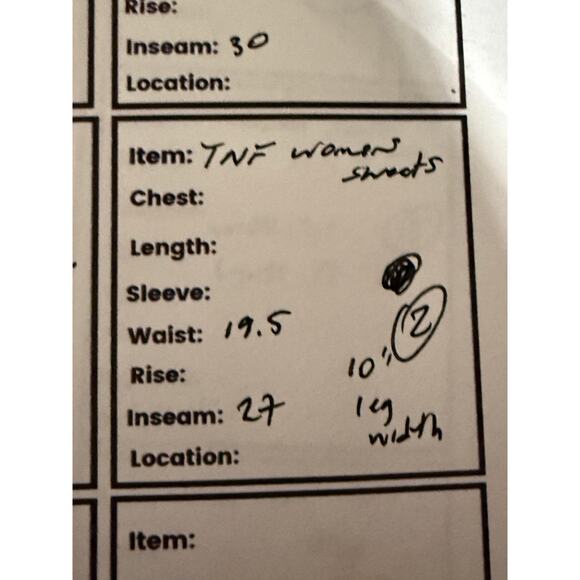 Rise:
Inseam: 30
Location:
Item: TNF womens
sweats
Chest:
Length:
Sleeve:
Waist: 19.5
12
Rise:
10"
Inseam: 27
leg
width
Location:
Item: